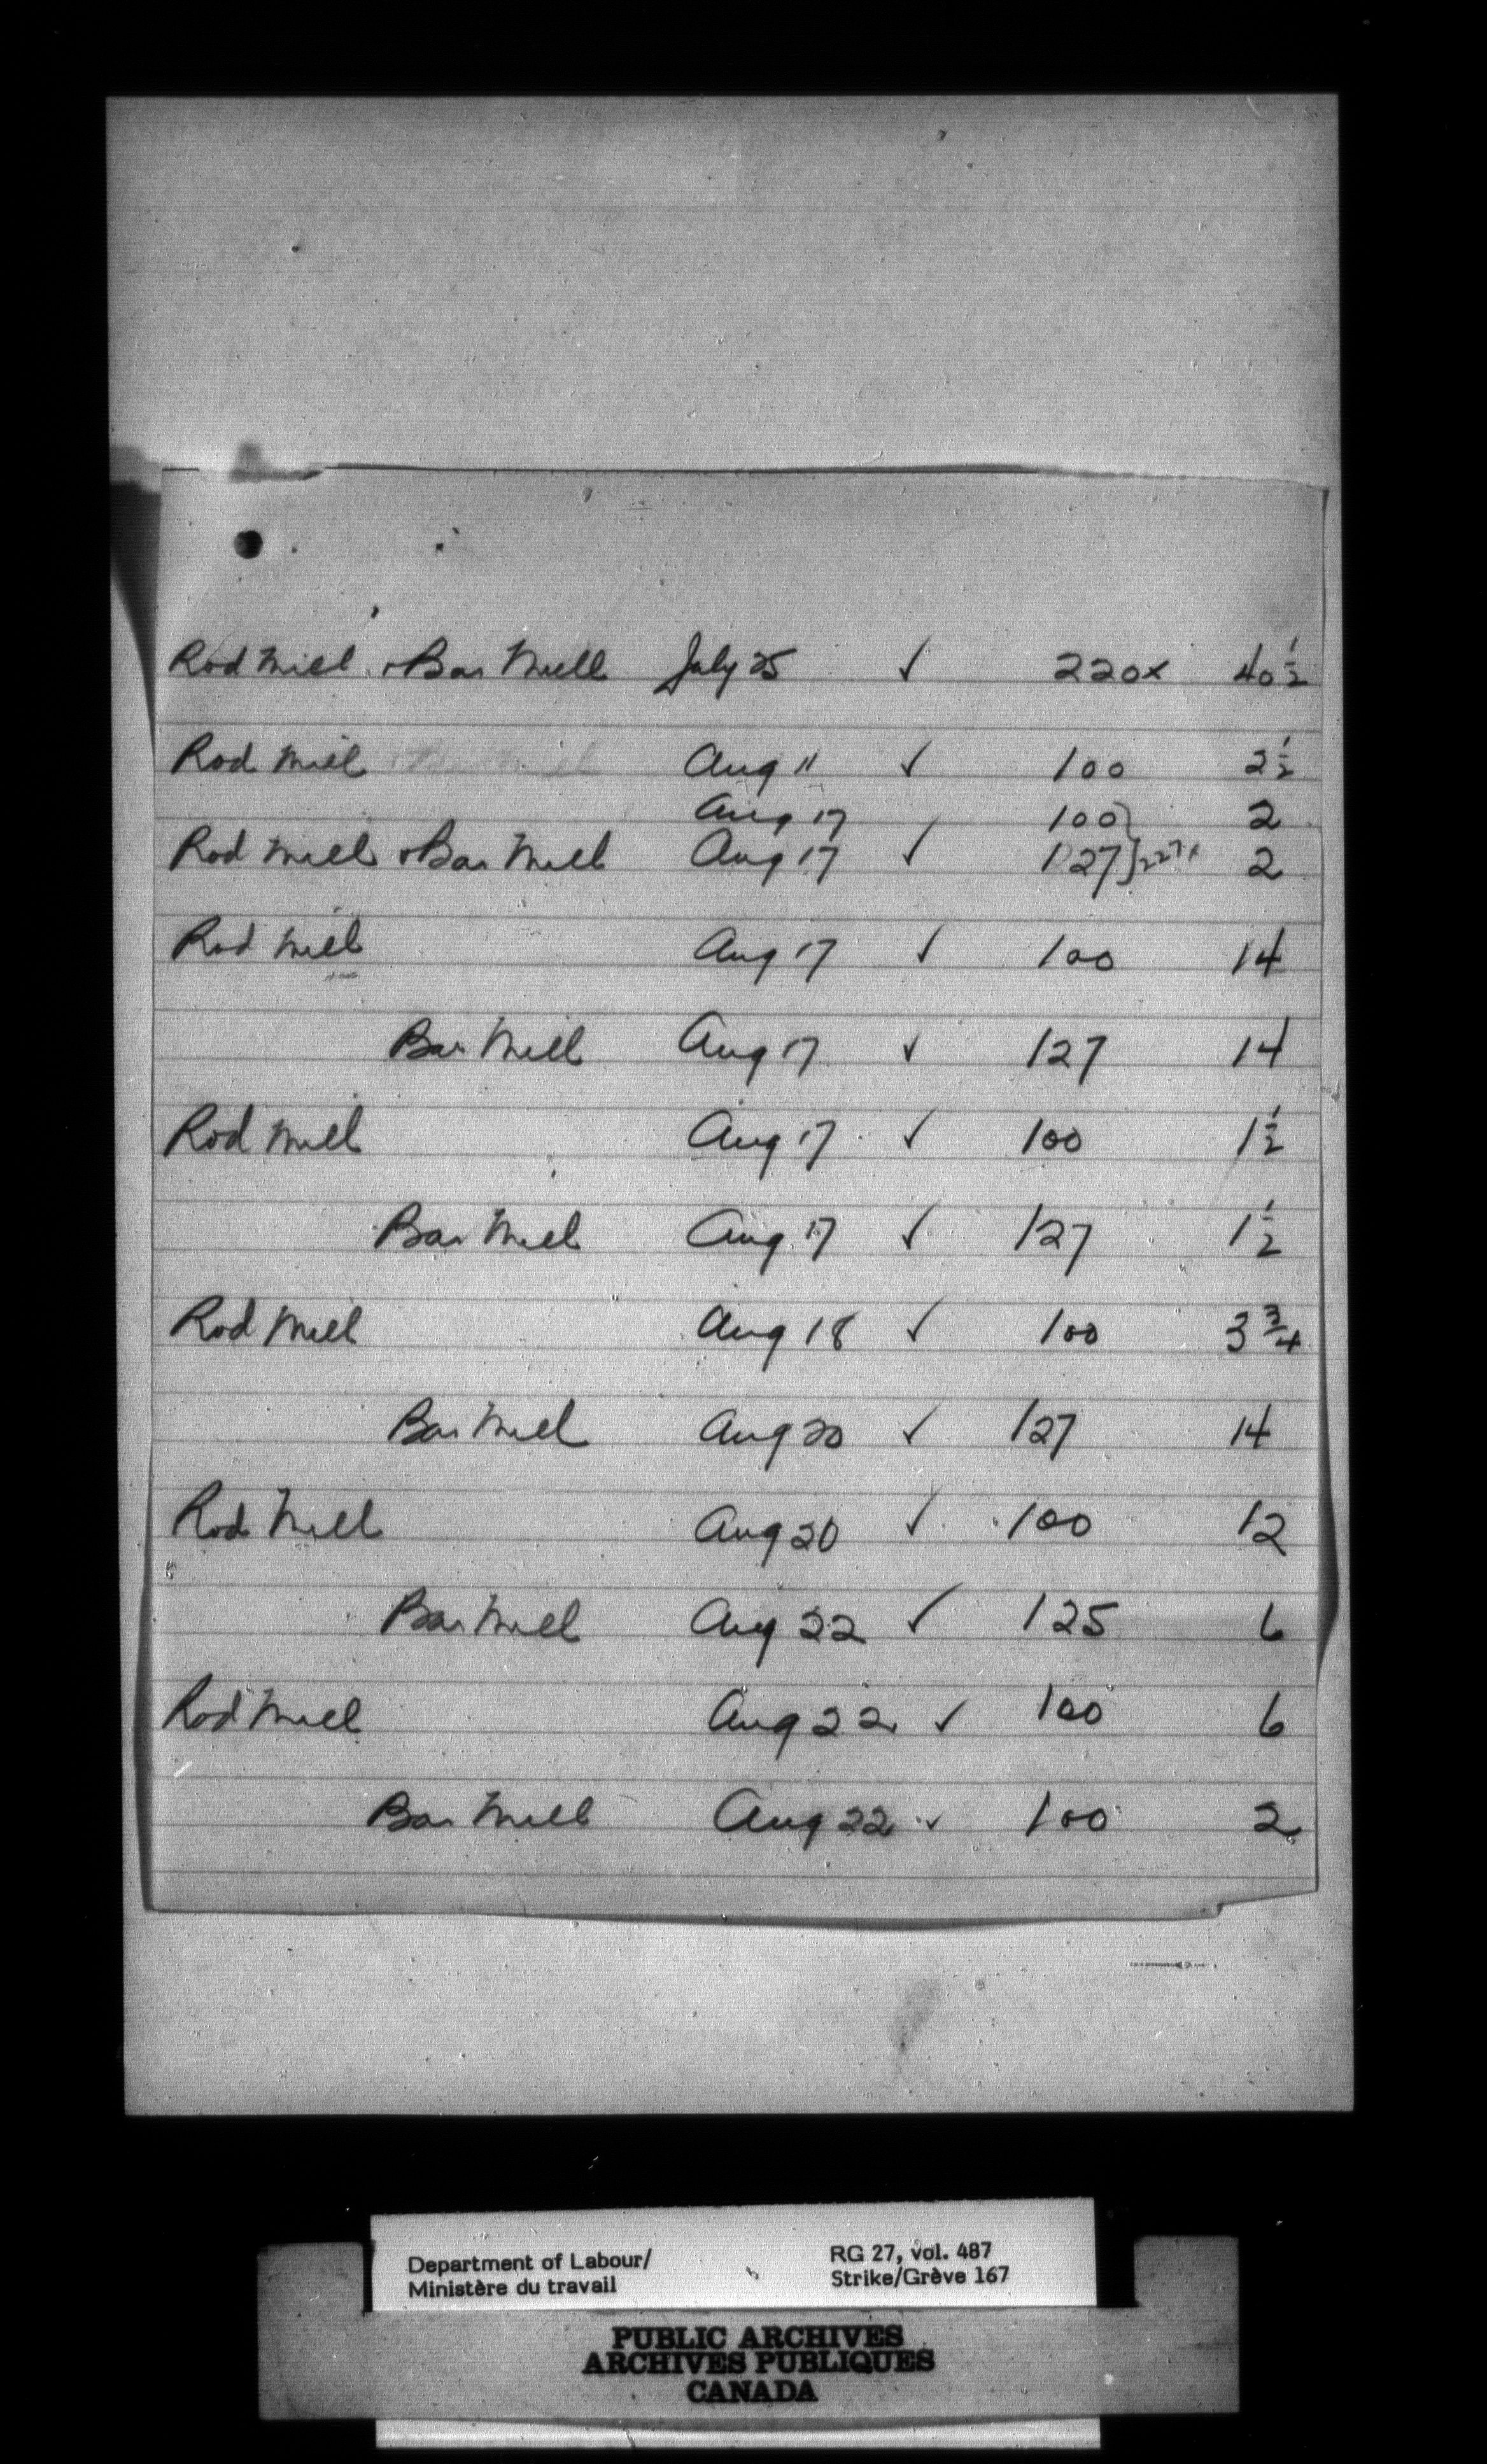 Rod Mill + Bar Mill July 25 ✓ 220x 40 1/2
Rod Mill Aug 11 ✓ 100 2 1/2
Aug 17 100 } 2
Rod Mill + Bar Mill Aug 17 ✓ 127 } 227x 2
Rod Mill Aug 17 ✓ 100 14
Bar Mill Aug 17 ✓ 127 14
Rod Mill Aug 17 ✓ 100 1 1/2
Bar Mill Aug 17 ✓ 127 1 1/2
Rod Mill Aug 18 ✓ 100 3 3/4
Bar Mill Aug 20 ✓ 127 14
Rod Mill Aug 20 ✓ 100 12
Bar Mill Aug 22 ✓ 125 6
Rod Mill Aug 22 ✓ 100 6
Bar Mill Aug 22 ✓ 100 2
Department of Labour/
Ministère du travail
RG 27, vol. 487
Strike/Grève 167
PUBLIC ARCHIVES
ARCHIVES PUBLIQUES
CANADA